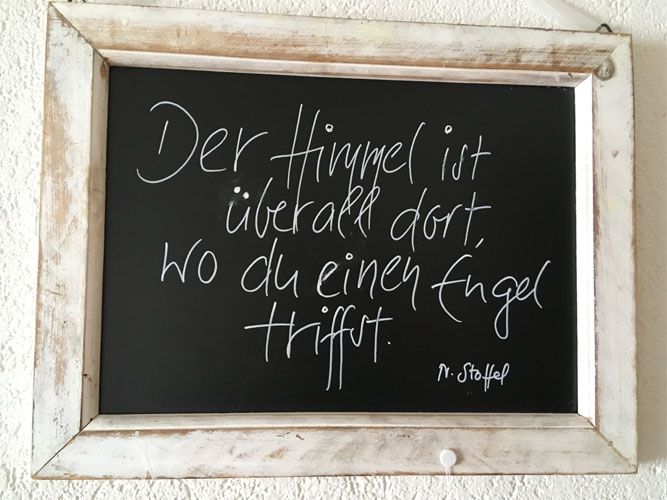 Der Himmel ist
überall dort,
wo du einen Engel
triffst.
N. Stoffel